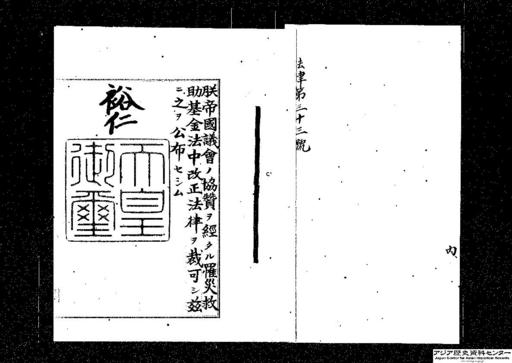 法律第三十三號
内
朕帝國議會ノ協贊ヲ經タル罹災救
助基金法中改正法律ヲ裁可シ茲
ニ之ヲ公布セシム
裕仁
天皇
御璽
アジア歴史資料センター
Japan Center for Asian Historical Records